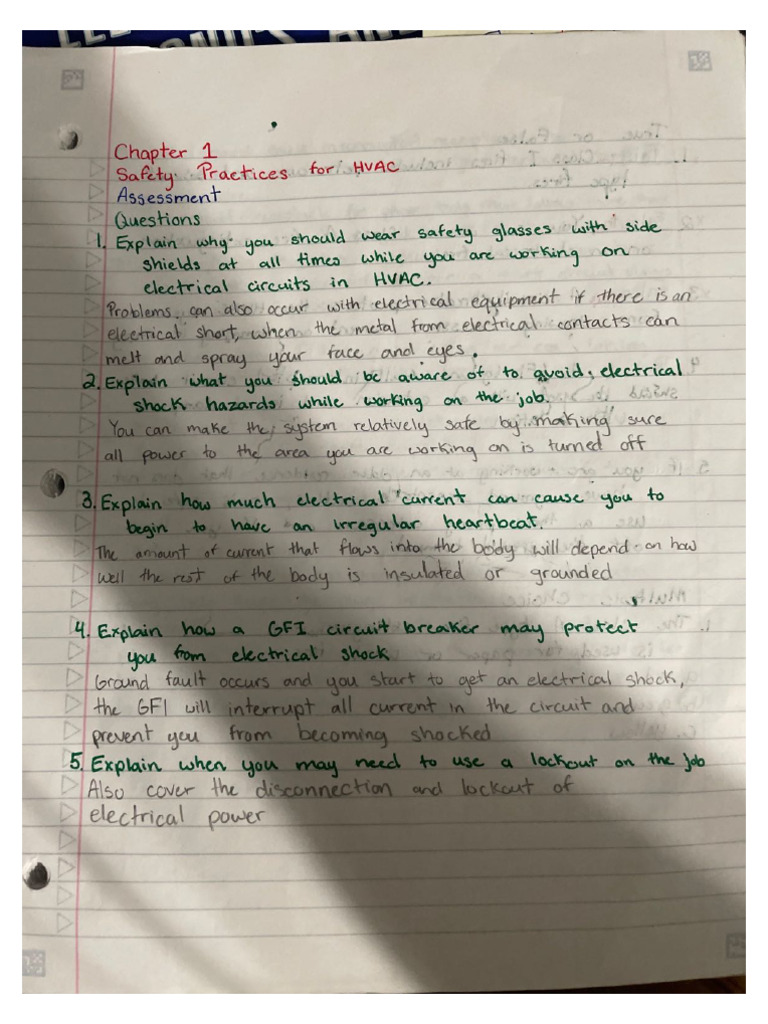 Chapter 1
Safety Practices for HVAC
Assessment
Questions
1. Explain why you should wear safety glasses with side
shields at all times while you are working on
electrical circuits in HVAC.
Problems can also occur with electrical equipment if there is an
electrical short, when the metal from electrical contacts can
melt and spray your face and eyes.
2. Explain what you should be aware of to avoid electrical
shock hazards while working on the job.
You can make the system relatively safe by making sure
all power to the area you are working on is turned off
3. Explain how much electrical current can cause you to
begin to have an irregular heartbeat.
The amount of current that flows into the body will depend on how
well the rest of the body is insulated or grounded
4. Explain how a GFI circuit breaker may protect
you from electrical shock
Ground fault occurs and you start to get an electrical shock,
the GFI will interrupt all current in the circuit and
prevent you from becoming shocked
5. Explain when you may need to use a lockout on the job
Also cover the disconnection and lockout of
electrical power